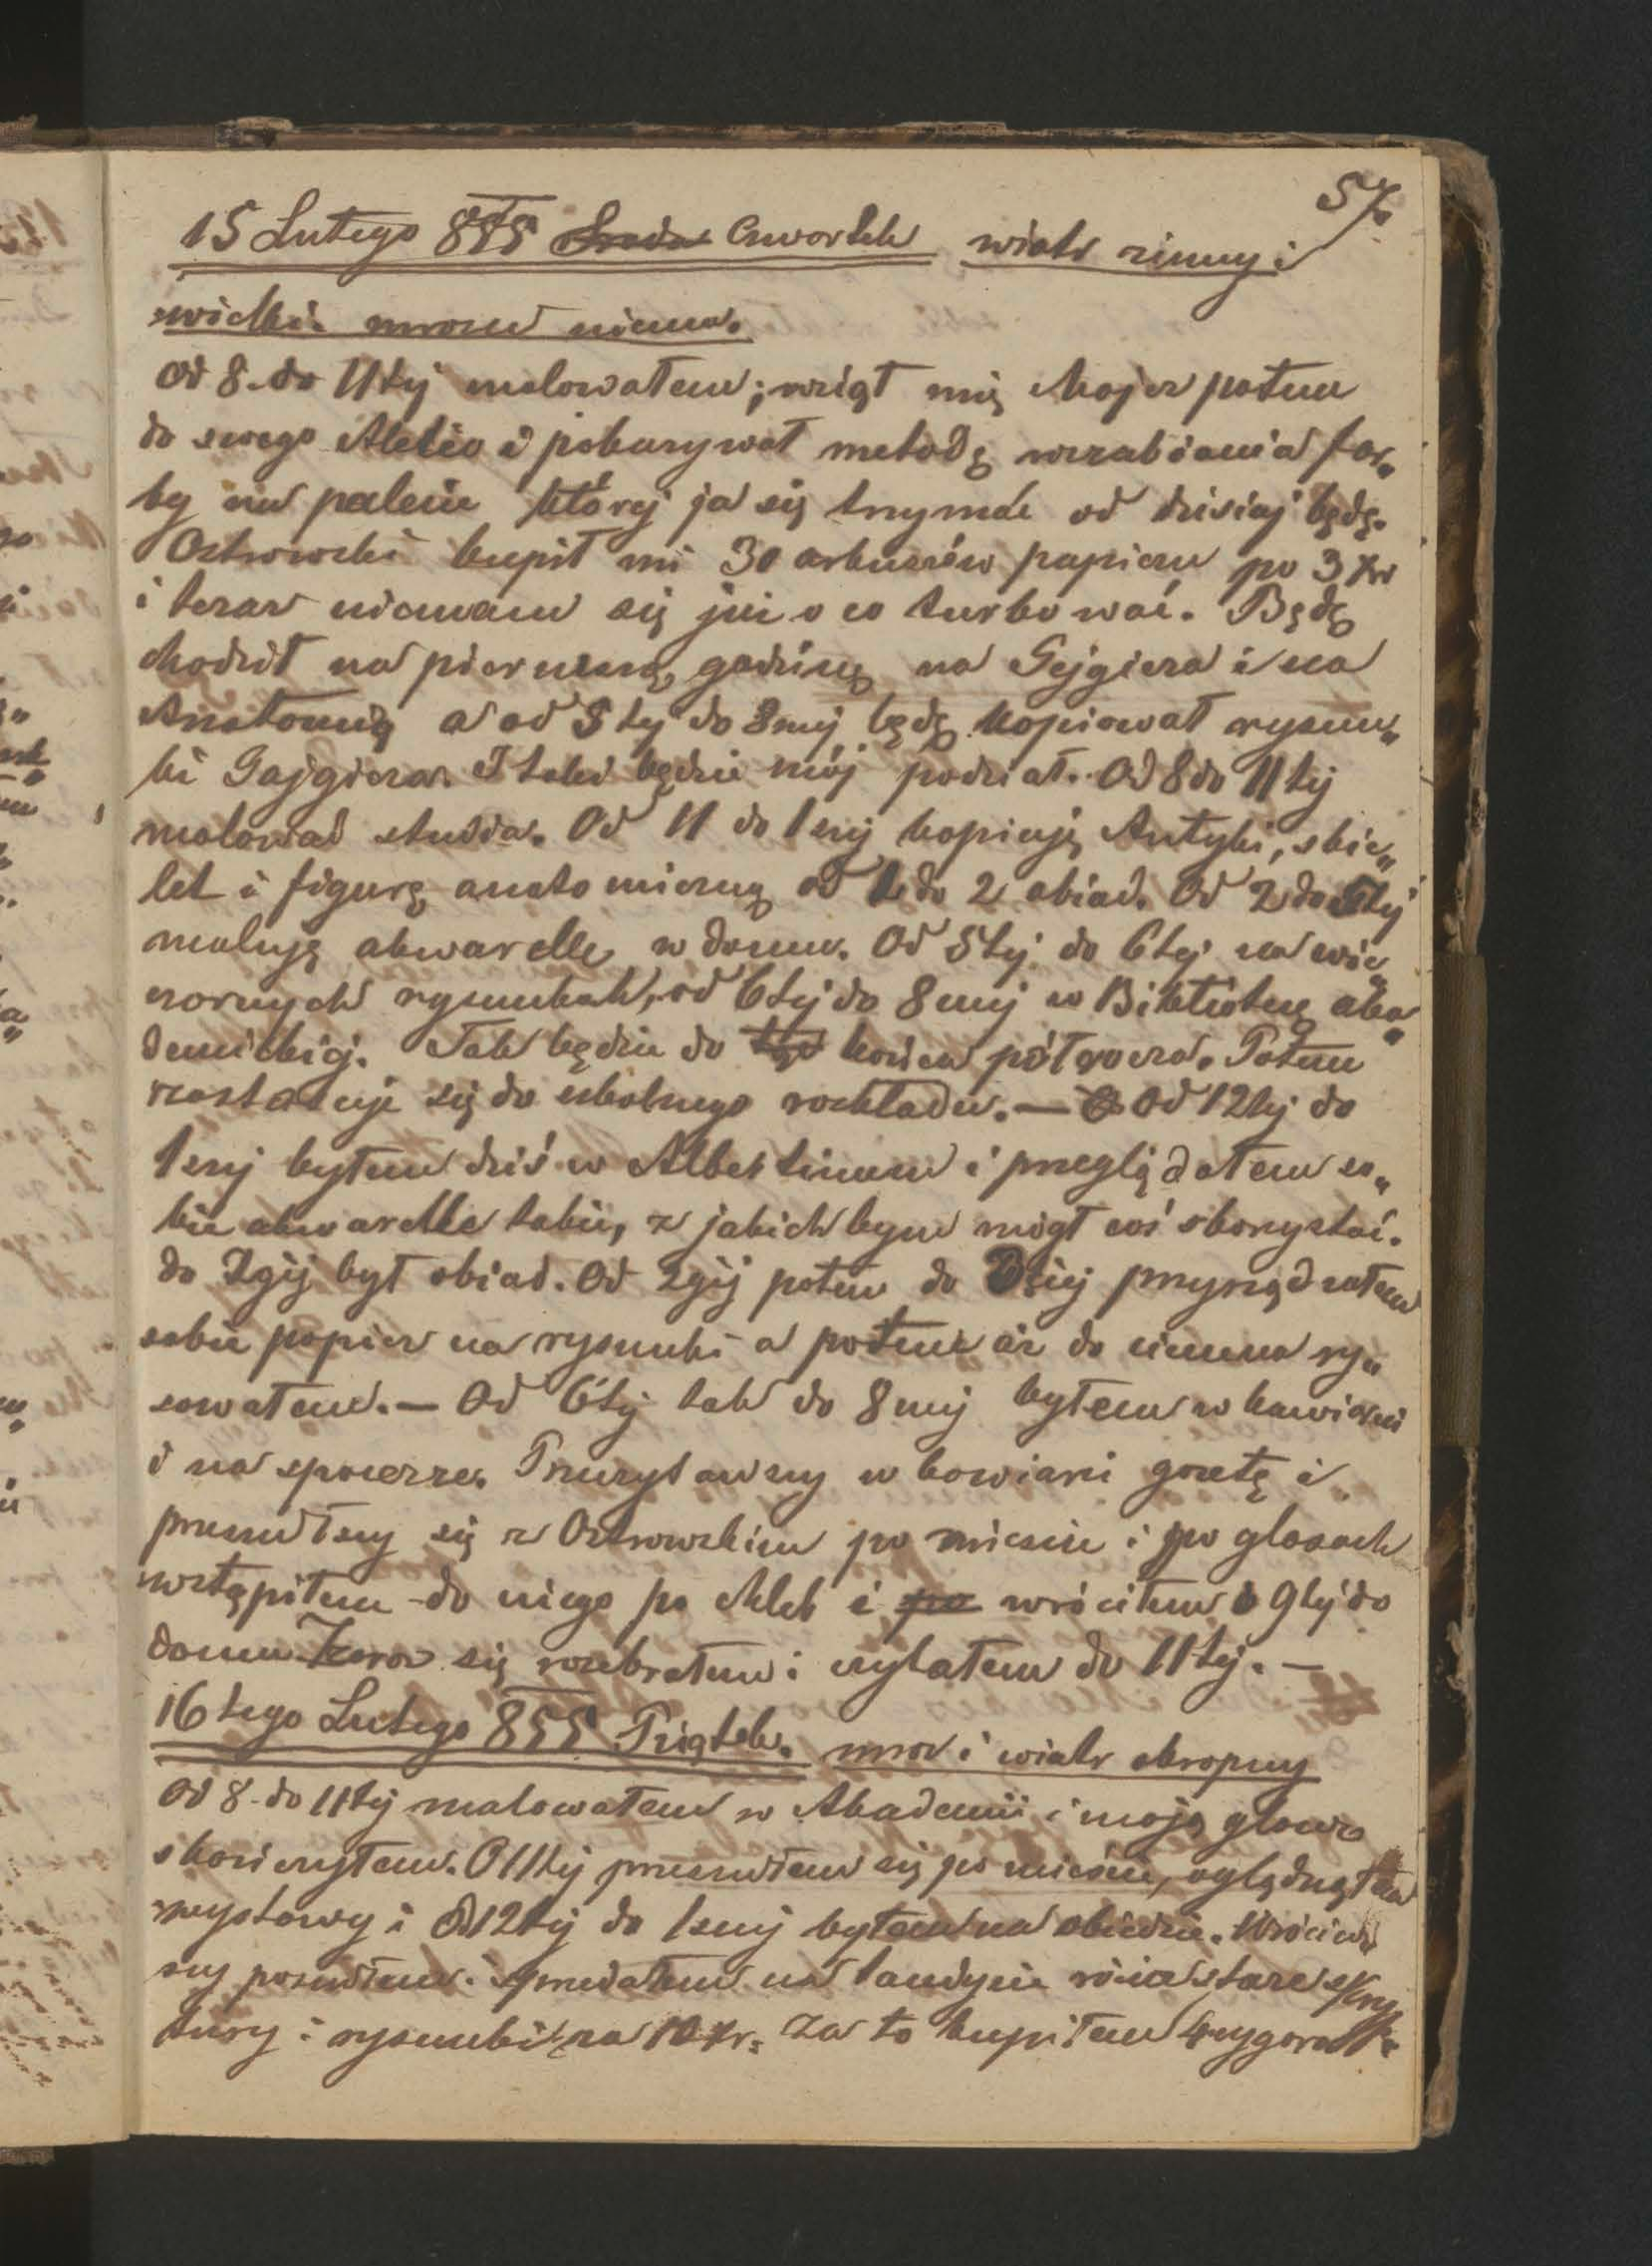 57.
15 Lutego 855 Środa Czwartek wiatr zimny i
wielki. mrozu niema.
Od 8. do 11tej malowałem; wziął mię Majer potem
do swego Atelie i pokazywał metodę wzrabiania far„
by na palecie której ja się trzymać od dzisiaj będę.
Ostrowski kupił mi 30 arkuszów papieru po 3 Xr
i teraz niemam się już o co turbować. Będę
chodził na pierwszą godzinę na Gejgiera i na
Anatomią a od 5tej do 8mej będę kopiował rysun„
ki Gajgiera. I taki będzie mój podział. Od 8 do 11tej
malować studia. Od 11 do 1szej kopiuję Antyki, skie„
let i figurę anatomiczną od 1 do 2 obiad. Od 2 do 5tej
maluję akwarelle w domu. Od 5tej do 6tej na wie„
czornych rysunkach, od 6tej do 8mej w Bibliotece aka„
demickiej. Tak będzie do końca półrocza. Potem
zastosuje się do szkolnego rozkładu. — Od 12tej do
1szej byłem dziś w Albertinum i przeglądałem so„
bie akwarelle takie, z jakich bym mógł coś skorzystać.
do 2giej był obiad. Od 2giej potem do 3ciej przyrządzałem
sobie papier na rysunki a potem aż do ciemna ry„
sowałem. — Od 6tej tak do 8mej byłem w kawiarni
i na spacerze. Przeczytawszy w kawiarni gazetę i
przeszedłszy się z Ostrowskim po mieście i po glasach
wstąpiłem do niego po chleb i po wróciłem o 9tej do
domu. Zaraz się rozebrałem i czytałem do 11tej. —
16tego Lutego 855 Piątek. mróz i wiatr okropny
Od 8. do 11tej malowałem w Akademii i moją głowę
skończyłem. O 11tej przeszedłem się po mieście, oglądnąłem
wystawy i Od 12tej do 1szej byłem na obiedzie. Wróciw„
szy poszedłem i sprzedałem na tandycie różne stare skryp
tury i rysunki za 10 Xr. Za to kupiłem 4 cygara